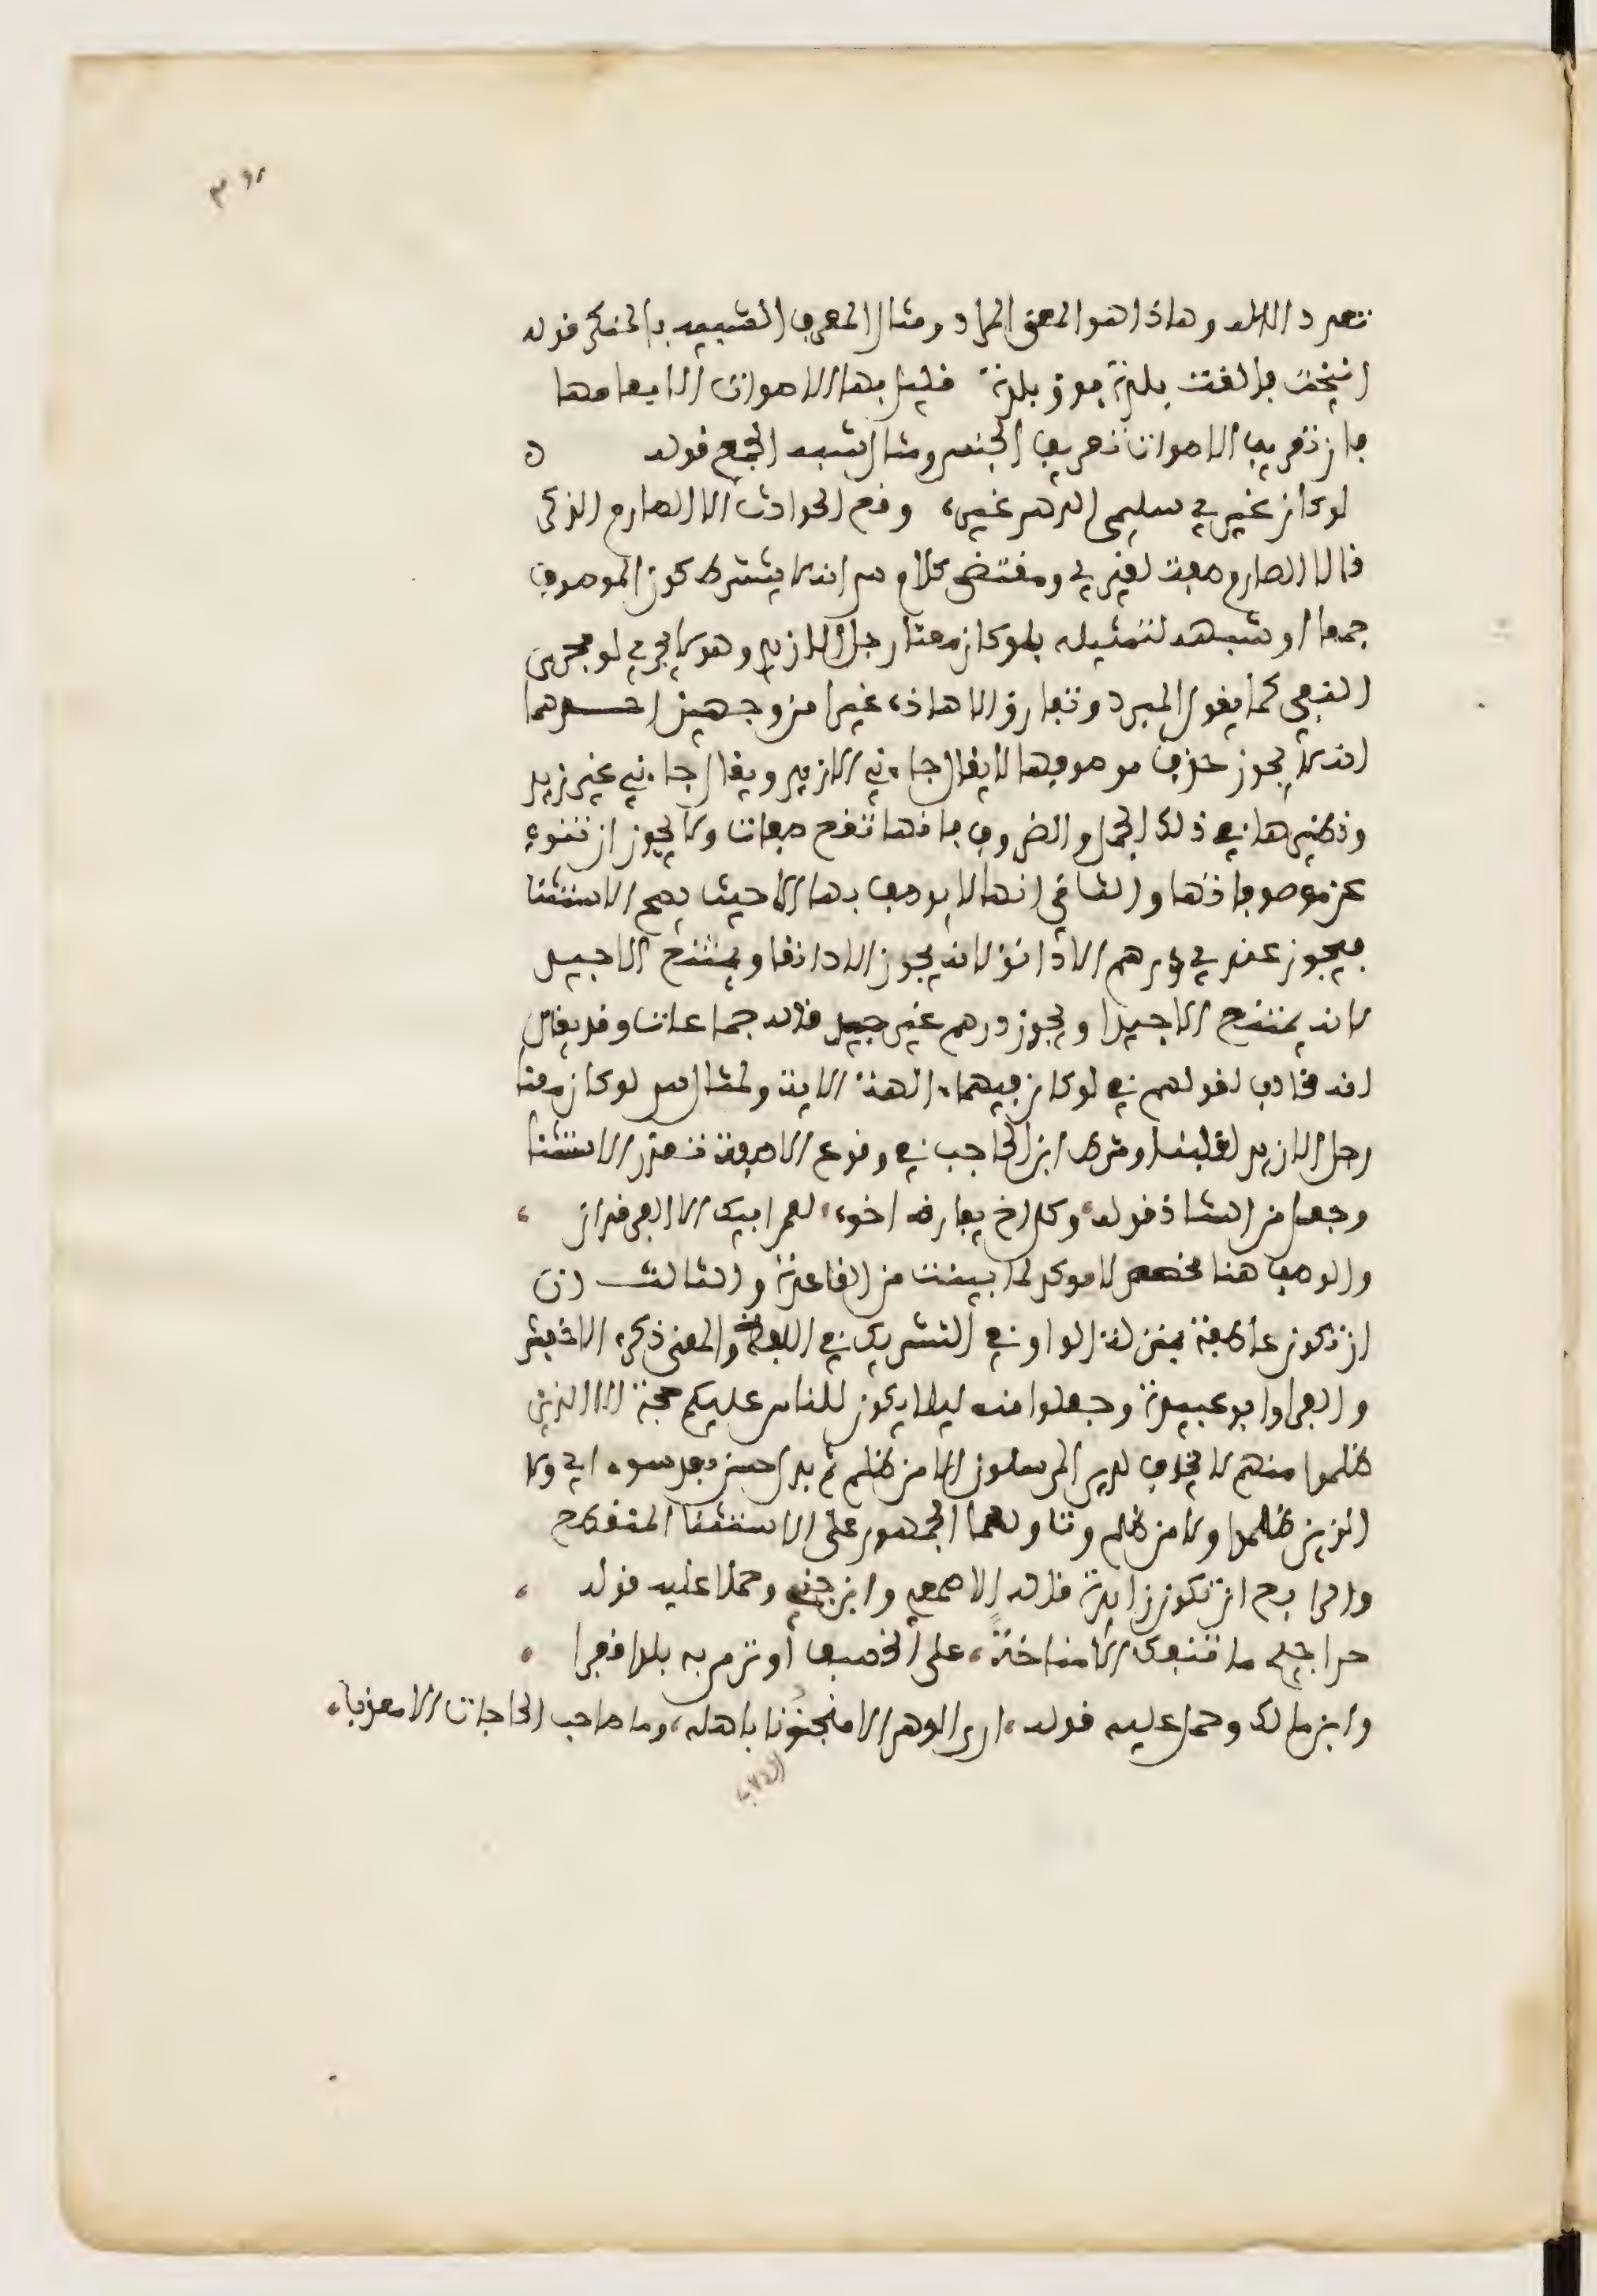 تعدد الاله وهاذا هو المعنى المراد ومثال المعرف الشبيه بالمنكر قوله
انيخت فالقت بلدة فوق بلدة قليل بها الاصوات الا بغامها
فان تعريف الاصوات تعريف الجنس ومثال شبه الجمع قوله
لو كان غيري سليمى الدهر غيره وقع الحوادث الا الصارم الذكر
فالا الصارم صفة لغيري ومقتضى كلام س انه لا يشترط كون الموصوف
جمعا او شبهه لتمثيله بلو كان معنا رجل الا زيد وهو لا يجري لو مجرى
النفي كما يقول المبرد وتفارق الا هاذه غيرا من وجهين احدهما
انه لا يجوز حذف موصوفها لا يقال جاءني الا زيد ويقال جاءني غير زيد
ونظيرها في ذلك الجمل والظروف فانها تقع صفات ولا يجوز ان تنوب
عن موصوفاتها والثاني انها لا يوصف بها الا حيث يصح الاستثنا
فيجوز عندي درهم الا دانق لانه يجوز الا دانقا ويمتنع الا جيد
لانه يمتنع الا جيدا ويجوز درهم غير جيد قاله جماعات وقد يقال
انه مخالف لقولهم في لو كان فيهما ءالهة الاية ولمثال س لو كان معنا
رجل الا زيد لغلبنا وشرط ابن الحاجب في وقوع الا صفة تعذر الاستثنا
وجعل من الشاذ قوله وكل اخ يفارقه اخوه لعمر ابيك الا الفرقدان
والوصف هنا مخصص لا موكد لما بينت من القاعدة والثالث ان
ان تكون عاطفة بمنزلة الواو في التشريك في اللفظ والمعنى ذكره الاخفش
والفرا وابو عبيدة وجعلوا منه ليلا يكون للناس عليكم حجة الا الذين
ظلموا منهم لا يخاف لدي المرسلون الا من ظلم ثم بدل حسنا بعد سوء اي ولا
الذين ظلموا ولا من ظلم وتاولهما الجمهور على الاستثنا المنقطع
والرابع ان تكون زايدة قاله الاصمعي وابن جني وحملا عليه قوله
حراجيج ما تنفك الا مناخة على الخسف او ترمي به بلدا قفرا
وابن مالك وحمل عليه قوله ارى الدهر الا منجنونا باهله وما صاحب الحاجات الا معذبا